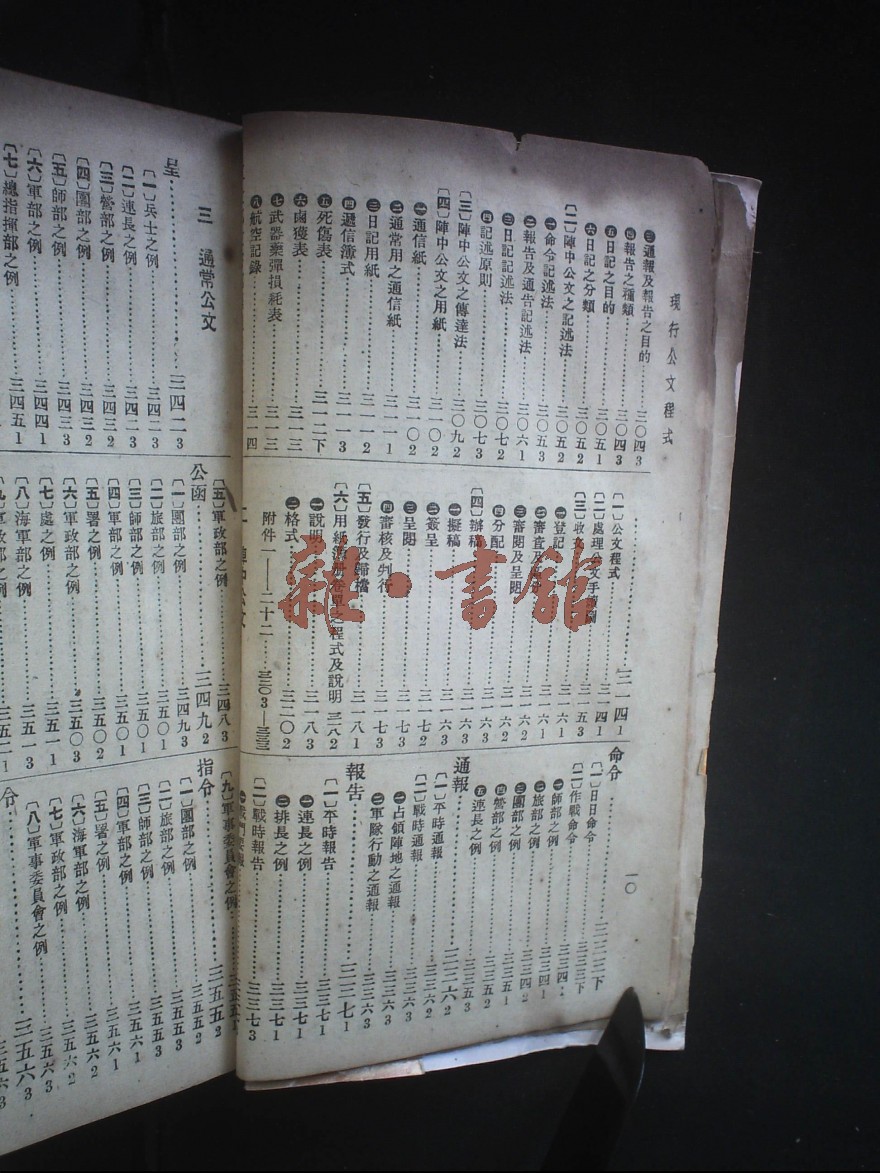 現行公文程式
一〇
㊂通報及報告之目的……三〇四3
㊃報告之種類……三〇四3
㊄日記之目的……三〇五1
㊅日記之分類……三〇五2
〔二〕陣中公文之記述法……三〇五2
㊀命令記述法……三〇五3
㊁報告及通告記述法……三〇六1
㊂日記記述法……三〇七1
㊃記述原則……三〇七3
〔三〕陣中公文之傳達法……三〇九2
〔四〕陣中公文之用紙……三一〇2
㊀通信紙……三一〇2
㊁通常用之通信紙……三一一1
㊂日記用紙……三一一2
㊃遞信簿式……三一一3
㊄死傷表……三一二下
㊅鹵獲表……三一三
㊆武器藥彈損耗表……三一三
㊇航空記錄……三一四
〔一〕公文程式……三一四1
〔二〕處理公文手續
〔三〕收文……三一五3
㊀登記……三一六1
㊁審查……三一六1
㊂審閱及呈閱……三一六2
㊃分配……三一六2
〔四〕辦稿……三一六3
㊀擬稿……三一六3
㊁簽呈……三一七2
㊂呈閱……三一六3
㊃審核及判行……三一七3
〔五〕發行及歸檔……三一八1
〔六〕用紙
之程式及說明 三一八2
㊀說明……三一八3
㊁格式……三二〇2
附件一——二十二
命令……三三三下
〔一〕日日命令……三三三下
〔二〕作戰命令……三三四
㊀師部之例……三三四
㊁旅部之例……三三四1
㊂團部之例……三三五1
㊃營部之例……三三五2
㊄連長之例……三三五3
通報……三三六2
〔一〕平時通報……三三六2
〔二〕戰時通報……三三六3
㊀占領陣地之通報……三三六3
㊁軍隊行動之通報……三三六3
報告……三三七1
〔一〕平時報告……三三七1
㊀連長之例……三三七1
㊁排長之例……三三七1
〔二〕戰時報告……三三七3
三 通常公文
呈……三四二3
〔一〕兵士之例……三四二3
〔二〕連長之例……三四二3
〔三〕營部之例……三四二3
〔四〕團部之例……三四三2
〔五〕師部之例……三四三3
〔六〕軍部之例……三四四1
〔七〕總指揮部之例……三四五1
〔五〕軍政部之例……三四八3
公函……三四九2
〔一〕團部之例……三四九3
〔二〕旅部之例……三五〇1
〔三〕師部之例……三五〇1
〔四〕軍部之例……三五〇1
〔五〕署之例……三五〇2
〔六〕軍政部之例……三五〇3
〔七〕處之例……三五一1
〔八〕海軍部之例……三五一3
〔九〕軍事委員會之例……三五五1
指令……三五五2
〔一〕團部之例……三五五2
〔二〕旅部之例……三五五3
〔三〕師部之例……三五五3
〔四〕軍部之例……三五六1
〔五〕署之例……三五六1
〔六〕海軍部之例……三五六2
〔七〕軍政部之例……三五六2
〔八〕軍事委員會之例……三五六3
令……三五六3
雜·書館